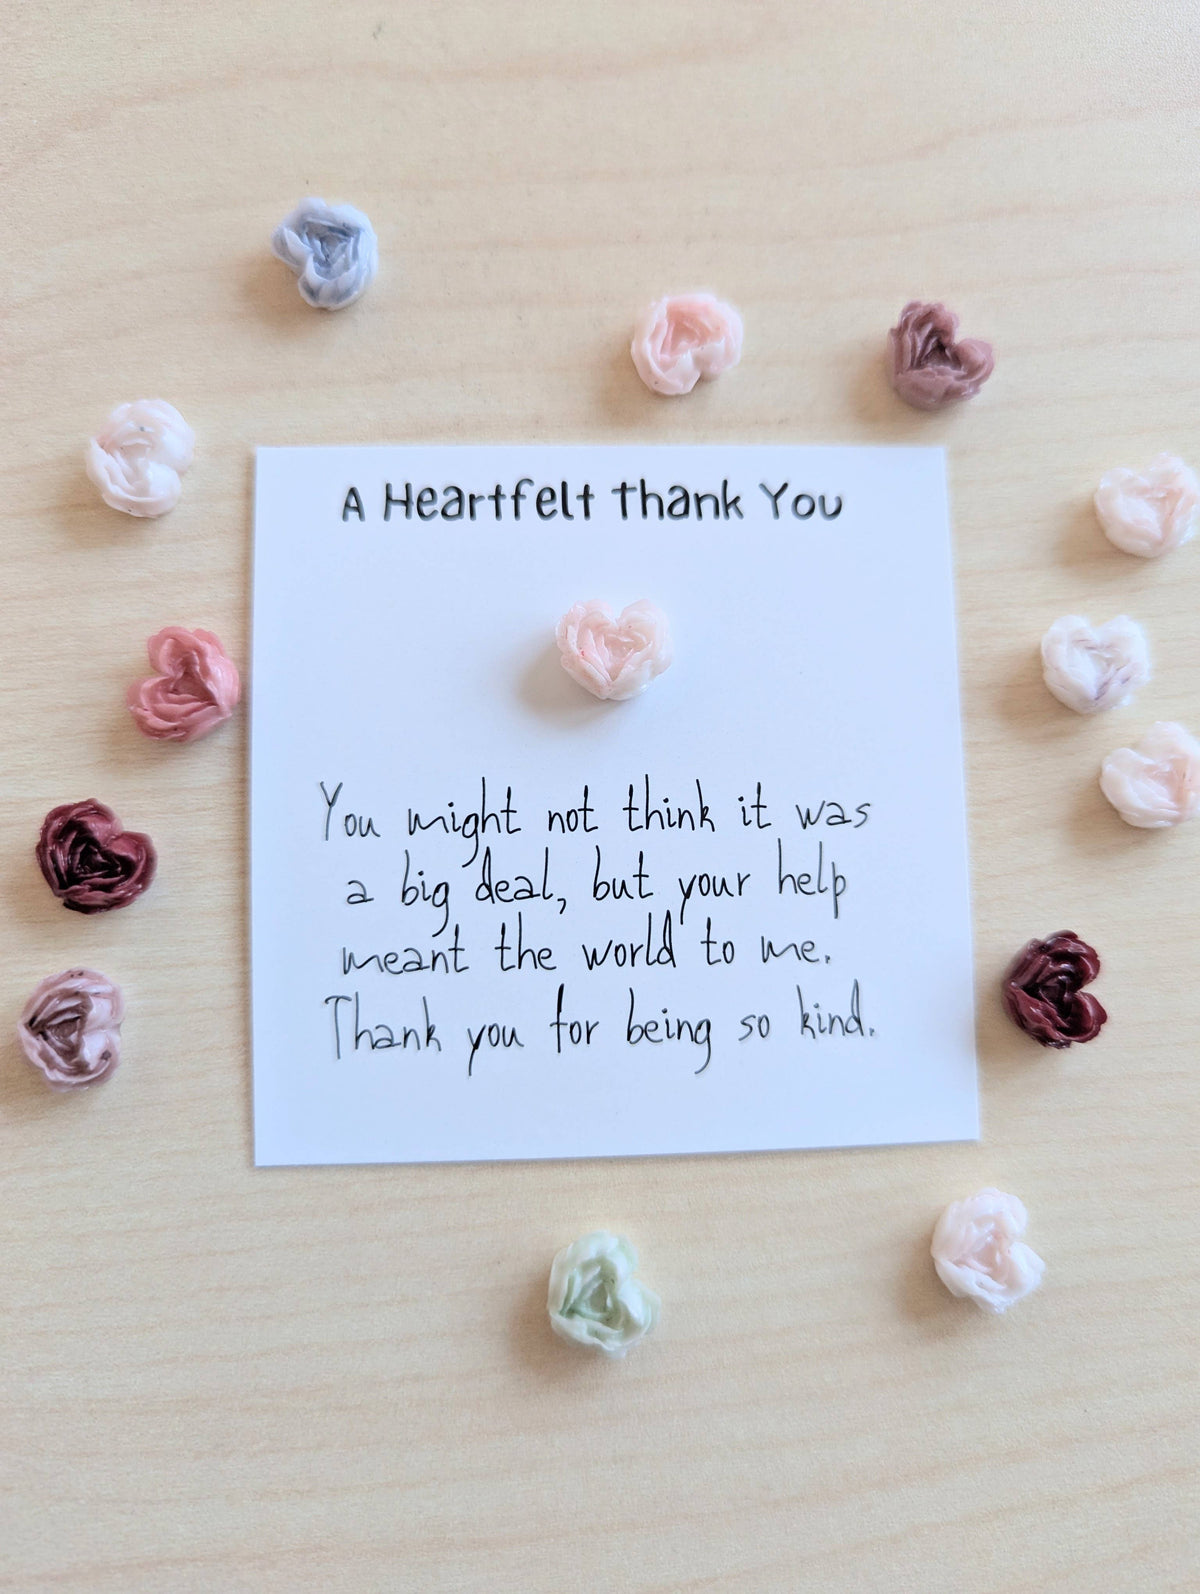 A Heartfelt Thank You
You might not think it was
a big deal, but your help
meant the world to me.
Thank you for being so kind.